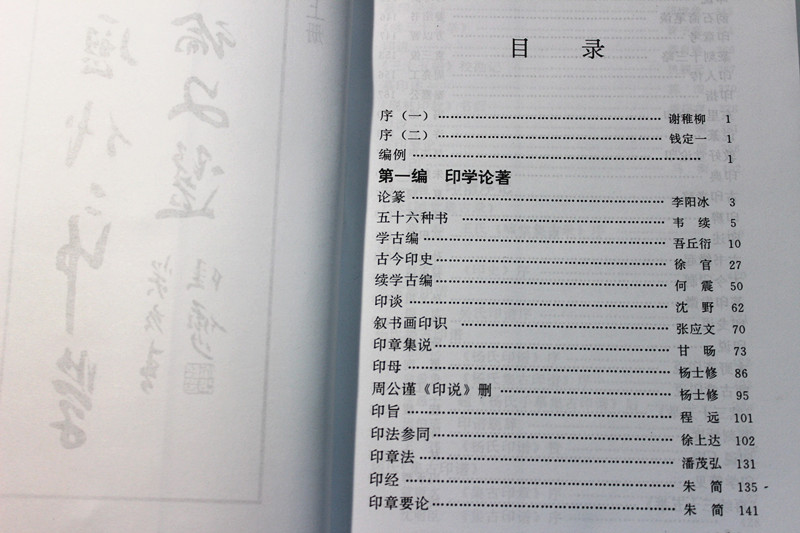 目 录
序（一）……谢稚柳 1
序（二）……钱定一 1
编例……1
第一编 印学论著
论篆……李阳冰 3
五十六种书……韦 续 5
学古编……吾丘衍 10
古今印史……徐 官 27
续学古编……何 震 50
印谈……沈 野 62
叙书画印识……张应文 70
印章集说……甘 旸 73
印母……杨士修 86
周公谨《印说》删……杨士修 95
印旨……程 远 101
印法参同……徐上达 102
印章法……潘茂弘 131
印经……朱 简 135
印章要论……朱 简 141